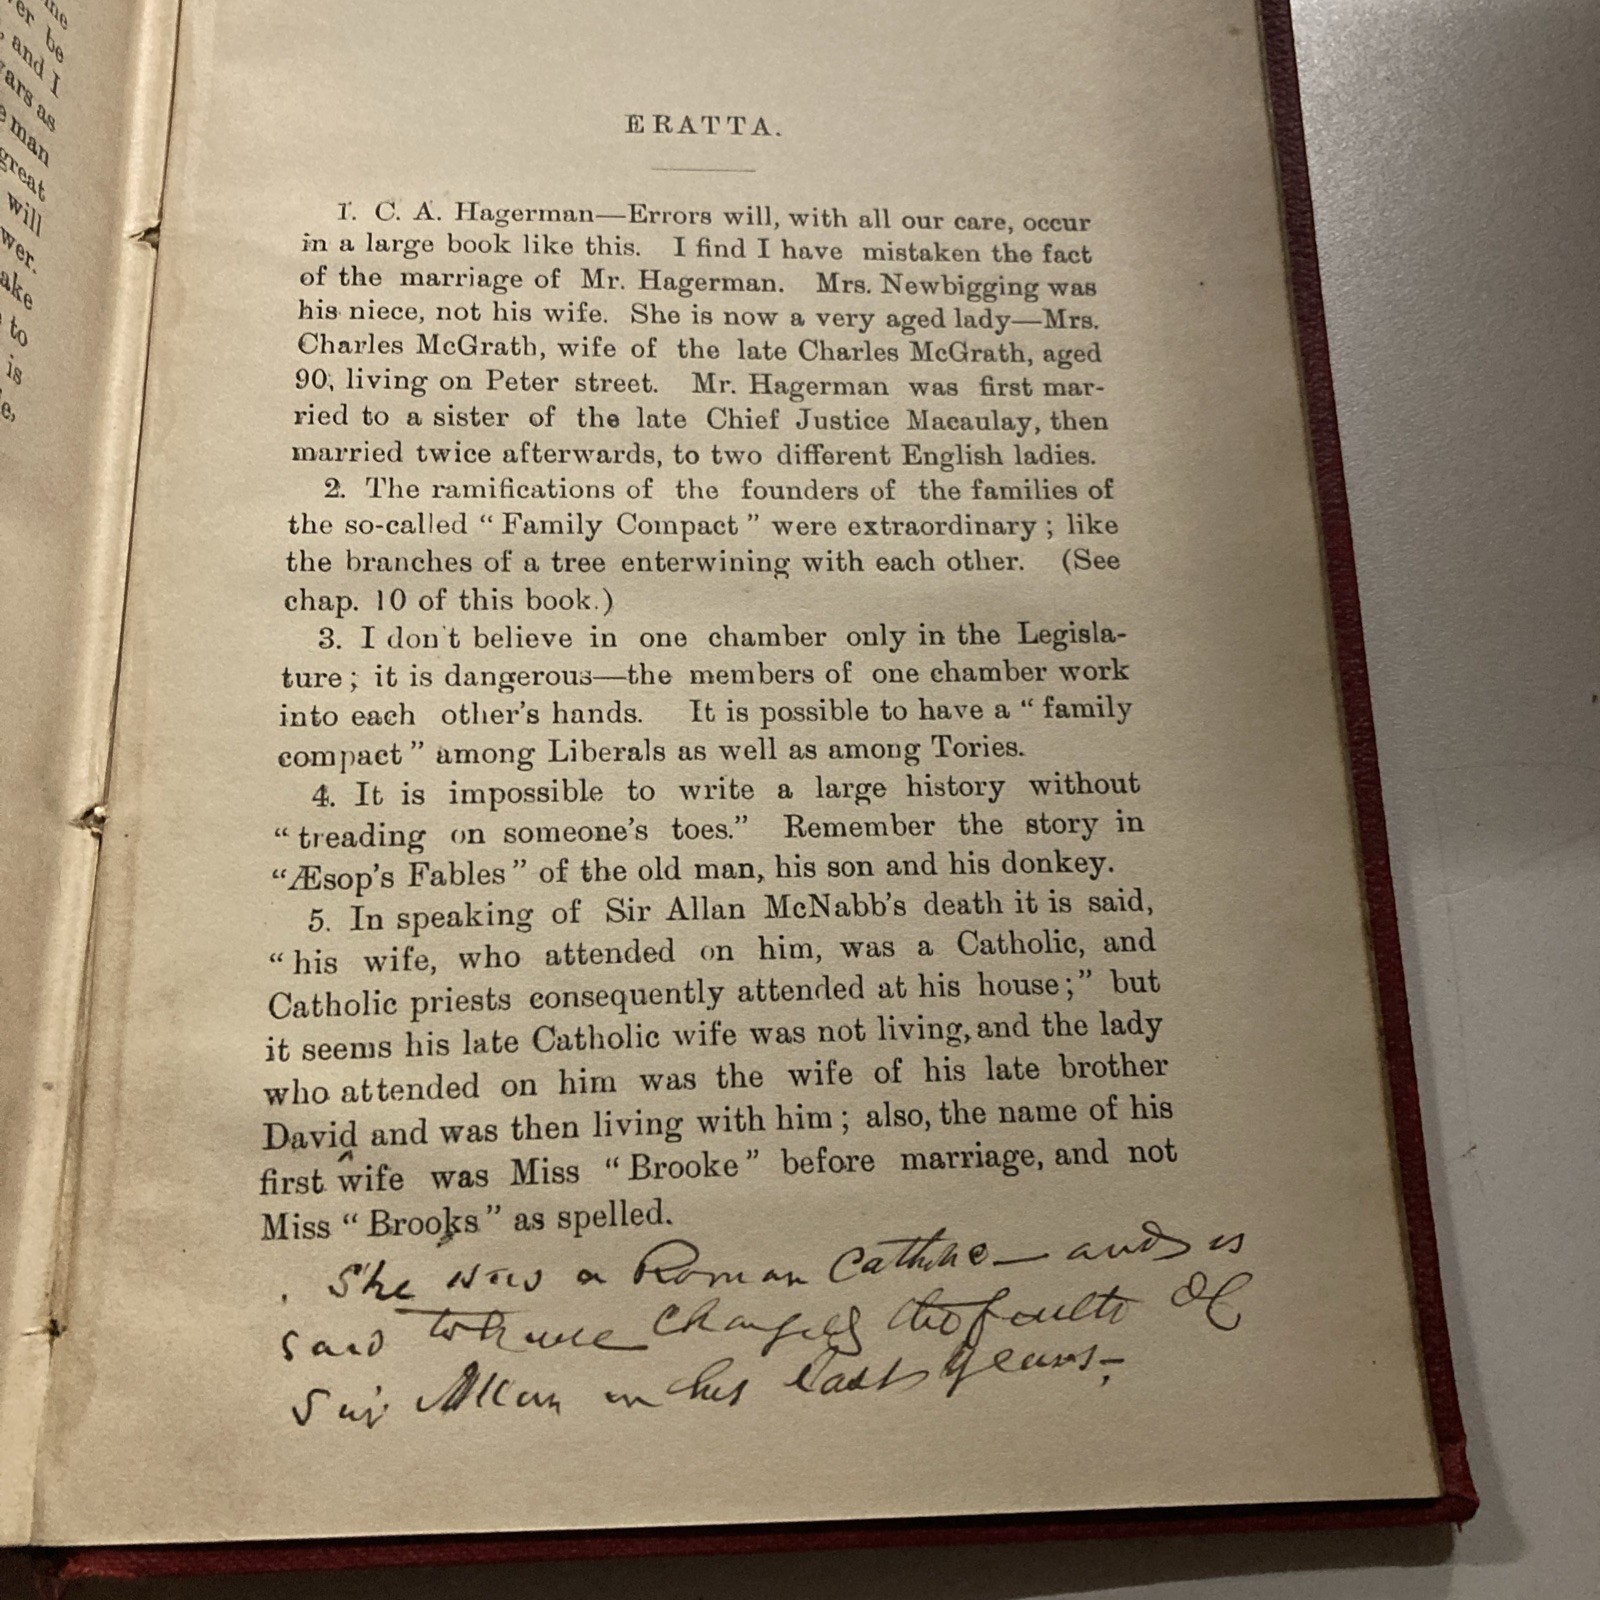 me
er be
, and I
ears as
e man
great
will
wer.
ake
to
is
e,
ERATTA.
1. C. A. Hagerman—Errors will, with all our care, occur
in a large book like this. I find I have mistaken the fact
of the marriage of Mr. Hagerman. Mrs. Newbigging was
his niece, not his wife. She is now a very aged lady—Mrs.
Charles McGrath, wife of the late Charles McGrath, aged
90, living on Peter street. Mr. Hagerman was first mar-
ried to a sister of the late Chief Justice Macaulay, then
married twice afterwards, to two different English ladies.
2. The ramifications of the founders of the families of
the so-called “Family Compact” were extraordinary; like
the branches of a tree enterwining with each other. (See
chap. 10 of this book.)
3. I don't believe in one chamber only in the Legisla-
ture; it is dangerous—the members of one chamber work
into each other's hands. It is possible to have a “family
compact” among Liberals as well as among Tories.
4. It is impossible to write a large history without
“treading on someone's toes.” Remember the story in
“Æsop's Fables” of the old man, his son and his donkey.
5. In speaking of Sir Allan McNabb's death it is said,
“his wife, who attended on him, was a Catholic, and
Catholic priests consequently attended at his house;” but
it seems his late Catholic wife was not living, and the lady
who attended on him was the wife of his late brother
David and was then living with him; also, the name of his
first wife was Miss “Brooke” before marriage, and not
Miss “Brooks” as spelled.
She was a Roman Catholic— and is
said to have changed the faith of
Sir Allan in his last years—